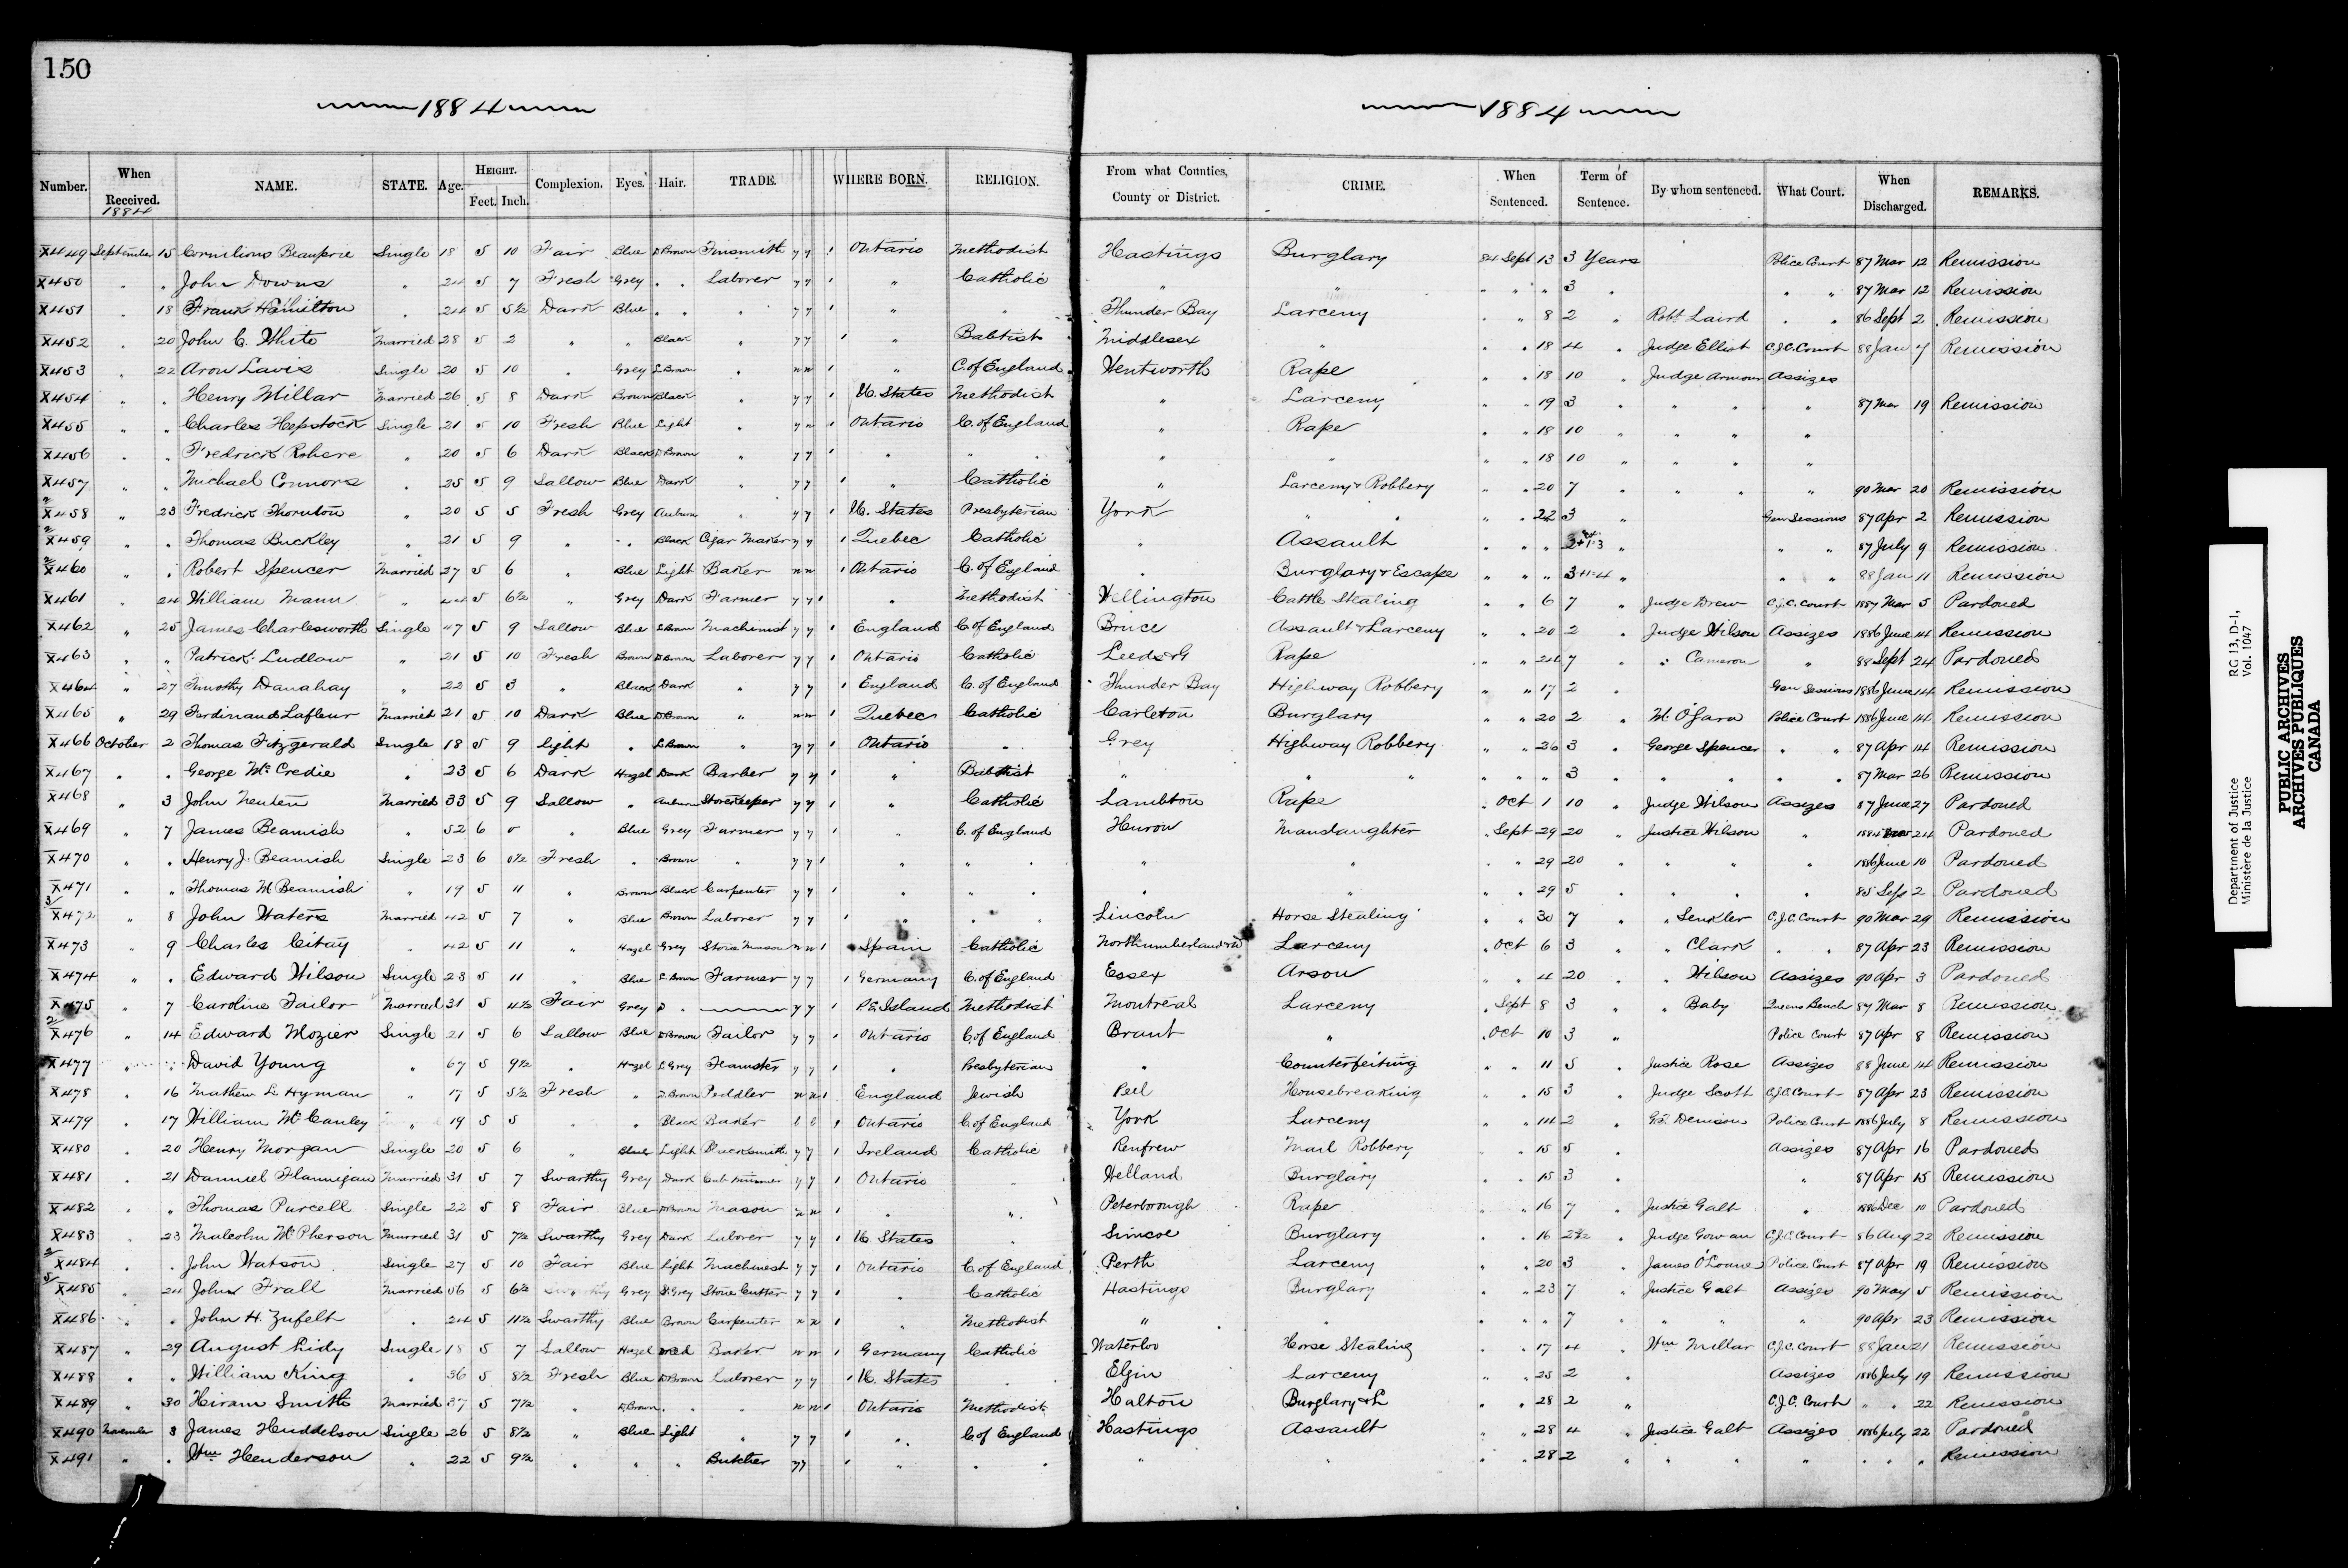 150
1884
1884
Number. When Received. 1884 NAME. STATE. Age. HEIGHT. Feet. Inch. Complexion. Eyes. Hair. TRADE. WHERE BORN. RELIGION. From what Counties, County or District. CRIME. When Sentenced. Term of Sentence. By whom sentenced. What Court. When Discharged. REMARKS.
X449 September 15 Cornilious Beauprie Single 18 5 10 Fair Blue D Brown Tinsmith y y 1 Ontario Methodist Hastings Burglary 84 Sept 13 3 Years Police Court 87 Mar 12 Remission
X450 " " John Downs " 24 5 7 Fresh Grey " " Laborer y y 1 " Catholic " " " " " 3 " " " 87 Mar 12 Remission
X451 " 18 Frank Hamilton " 24 5 5½ Dark Blue " " " y y 1 " " Thunder Bay Larceny " " 8 2 " Robt Laird " " 86 Sept 2 Remission
X452 " 20 John C. White Married 28 5 2 " " Black " y y 1 " Babtist Middlesex " " " 18 4 " Judge Elliot C.J.C. Court 88 Jan 7 Remission
X453 " 22 Aron Lavis Single 20 5 10 " Grey L Brown " n n 1 " C. of England Wentworth Rape " " 18 10 " Judge Armour Assizes
X454 " " Henry Millar Married 26 5 8 Dark Brown Black " y y 1 U. States Methodist " Larceny " " 19 3 " " " " 87 Mar 19 Remission
X455 " " Charles Hepstock Single 21 5 10 Fresh Blue Light " y n 1 Ontario C. of England " Rape " " 18 10 " " " "
X456 " " Fredrick Rohere " 20 5 6 Dark Black D Brown " y y 1 " " " " " " 18 10 " " " "
X457 " " Michael Connors " 25 5 9 Sallow Blue Dark " y y 1 " Catholic " Larceny & Robbery " " 20 7 " " " " 90 Mar 20 Remission
2 X458 " 23 Fredrick Thornton " 20 5 5 Fresh Grey Auburn " y y 1 U. States Presbyterian York " " " " 22 3 " Gen Sessions 87 Apr 2 Remission
2 X459 " " Thomas Buckley " 21 5 9 " " Black Cigar Maker y y 1 Quebec Catholic " Assault " " " " " " 87 July 9 Remission
2 X460 " " Robert Spencer Married 27 5 6 " Blue Light Baker n n 1 Ontario C. of England " Burglary & Escape " " " " " " 88 Jan 11 Remission
X461 " 24 William Mann " 44 5 6½ " Grey Dark Farmer y y 1 " Methodist Wellington Cattle Stealing " " 6 7 " Judge Drew C.J.C. Court 1887 Mar 5 Pardoned
X462 " 25 James Charlesworth Single 47 5 9 Sallow Blue L Brown Machinest y y 1 England C. of England Bruce Assault & Larceny " " 20 2 " Judge Wilson Assizes 1886 June 14 Remission
X463 " " Patrick Ludlow " 21 5 10 Fresh Brown D Brown Laborer y y 1 Ontario Catholic Leeds & G Rape " " 24 7 " " Cameron " 88 Sept 24 Pardoned
X464 " 27 Timothy Danahay " 22 5 3 " Black Dark " y y 1 England C. of England Thunder Bay Highway Robbery " " 17 2 " Gen Sessions 1886 June 14 Remission
X465 " 29 Ferdinand Lafleur Married 21 5 10 Dark Blue D Brown " n n 1 Quebec Catholic Carleton Burglary " " 20 2 " M. O'Gara Police Court 1886 June 14 Remission
X466 October 2 Thomas Fitzgerald Single 18 5 9 Light " L Brown " y y 1 Ontario " Grey Highway Robbery " " 26 3 " George Spencer " " 87 Apr 14 Remission
X467 " " George McCredie " 23 5 6 Dark Hazel Dark Barber y y 1 " Babtist " " " " " " 3 " " " " " 87 Mar 26 Remission
X468 " 3 John Neuten Married 33 5 9 Sallow " Auburn Storekeeper y y 1 " Catholic Lambton Rape " Oct 1 10 " Judge Wilson Assizes 87 June 27 Pardoned
X469 " 7 James Beamish " 52 6 0 " Blue Grey Farmer y y 1 " C. of England Huron Manslaughter " Sept 29 20 " Justice Wilson " 24 Pardoned
X470 " " Henry J. Beamish Single 23 6 0½ Fresh " Brown " y y 1 " " " " " " 29 20 " " " " 1886 June 10 Pardoned
X471 " " Thomas M Beamish " 19 5 11 " Brown Black Carpenter y y 1 " " " " " " 29 5 " " " " 85 Sep 2 Pardoned
3 X472 " 8 John Waters Married 42 5 7 " Blue Brown Laborer y y 1 " " Lincoln Horse Stealing " " 30 7 " " Senkler C.J.C. Court 90 Mar 29 Remission
X473 " 9 Charles Citay " 42 5 11 " Hazel Grey Stone Mason n n 1 Spain Catholic Northumberland & D Larceny " Oct 6 3 " " Clark " " 87 Apr 23 Remission
X474 " " Edward Wilson Single 23 5 11 " Blue L Brown Farmer y y 1 Germany C. of England Essex Arson " " 4 20 " " Wilson Assizes 90 Apr 3 Pardoned
X475 " 7 Caroline Tailor Married 31 5 4½ Fair Grey D " y y 1 P.E. Island Methodist Montreal Larceny " Sept 8 3 " " Baby Queens Bench 87 Mar 8 Remission
2 X476 " 14 Edward Mozier Single 21 5 6 Sallow Blue D Brown Tailor y y 1 Ontario C. of England Brant " " Oct 10 3 " Police Court 87 Apr 8 Remission
X477 " " David Young " 67 5 9½ " Hazel L Grey Teamster y y 1 " Presbyterian " Counterfeiting " " 11 5 " Justice Rose Assizes 88 June 14 Remission
X478 " 16 Mathew L Hyman " 17 5 5½ Fresh " D Brown Peddler n n 1 England Jewish Peel Housebreaking " " 15 3 " Judge Scott C.J.C. Court 87 Apr 23 Remission
X479 " 17 William McCauley " 19 5 5 " " Black Baker 1 Ontario C. of England York Larceny " " 14 2 " G.T. Denison Police Court 1886 July 8 Remission
X480 " 20 Henry Morgan Single 20 5 6 " Blue Light y y 1 Ireland Catholic Renfrew Mail Robbery " " 15 5 " Assizes 87 Apr 16 Pardoned
X481 " 21 Danniel Flannigan Married 31 5 7 Swarthy Grey Dark y y 1 Ontario " Welland Burglary " " 15 3 " " 87 Apr 15 Remission
X482 " " Thomas Purcell Single 22 5 8 Fair Blue D Brown Mason n n 1 " " Peterborough Rape " " 16 7 " Justice Galt " 1886 Dec 10 Pardoned
X483 " 23 Malcolm McPherson Married 31 5 7½ Swarthy Grey Dark Laborer y y 1 U. States " Simcoe Burglary " " 16 2½ " Judge Gowan C.J.C. Court 86 Aug 22 Remission
2 X484 " " John Watson Single 27 5 10 Fair Blue Light Machinest y y 1 Ontario C. of England Perth Larceny " " 20 3 " James O'Loane Police Court 87 Apr 19 Remission
5 X485 " 24 John Frall Married 56 5 6½ Swarthy Grey D Grey Stone Cutter y y 1 " Catholic Hastings Burglary " " 23 7 " Justice Galt Assizes 90 May 5 Remission
X486 " " John H. Zufelt " 24 5 11½ Swarthy Blue Brown Carpenter n n 1 " Methodist " " " " " 7 " " " " 90 Apr 23 Remission
X487 " 29 August Lidy Single 18 5 7 Sallow Hazel Red Baker n n 1 Germany Catholic Waterloo Horse Stealing " 17 4 " Wm Millar C.J.C. Court 88 Jan 21 Remission
X488 " " William King " 36 5 8½ Fresh Blue D Brown Laborer y y 1 U. States " Elgin Larceny " 25 2 " Assizes 1886 July 19 Remission
X489 " 30 Hiram Smith Married 37 5 7½ " D Brown " " " n n 1 Ontario Methodist Halton Burglary & L " " 28 2 " C.J.C. Court " " 22 Remission
X490 November 3 James Huddelson Single 26 5 8½ " Blue Light " y y 1 " C. of England Hastings Assault " " 28 4 " Justice Galt Assizes 1886 July 22 Pardoned
X491 " " Wm Henderson " 22 5 9½ " " " Butcher y y 1 " " " " " " 28 2 " " " " " " " Remission
Department of Justice RG 13, D-1,
Ministère de la Justice Vol. 1047
PUBLIC ARCHIVES
ARCHIVES PUBLIQUES
CANADA